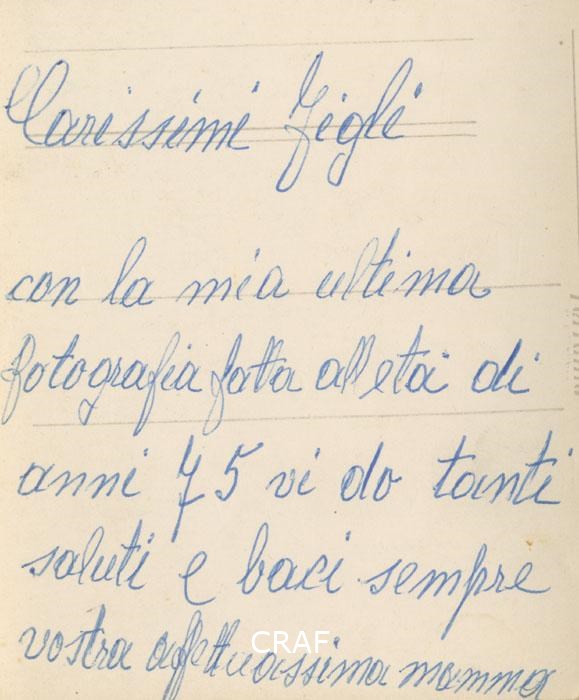 Carissimi figli
con la mia ultima
fotografia fatta all età di
anni 75 vi do tanti
saluti e baci sempre
vostra affettuosissima mamma
CRAF